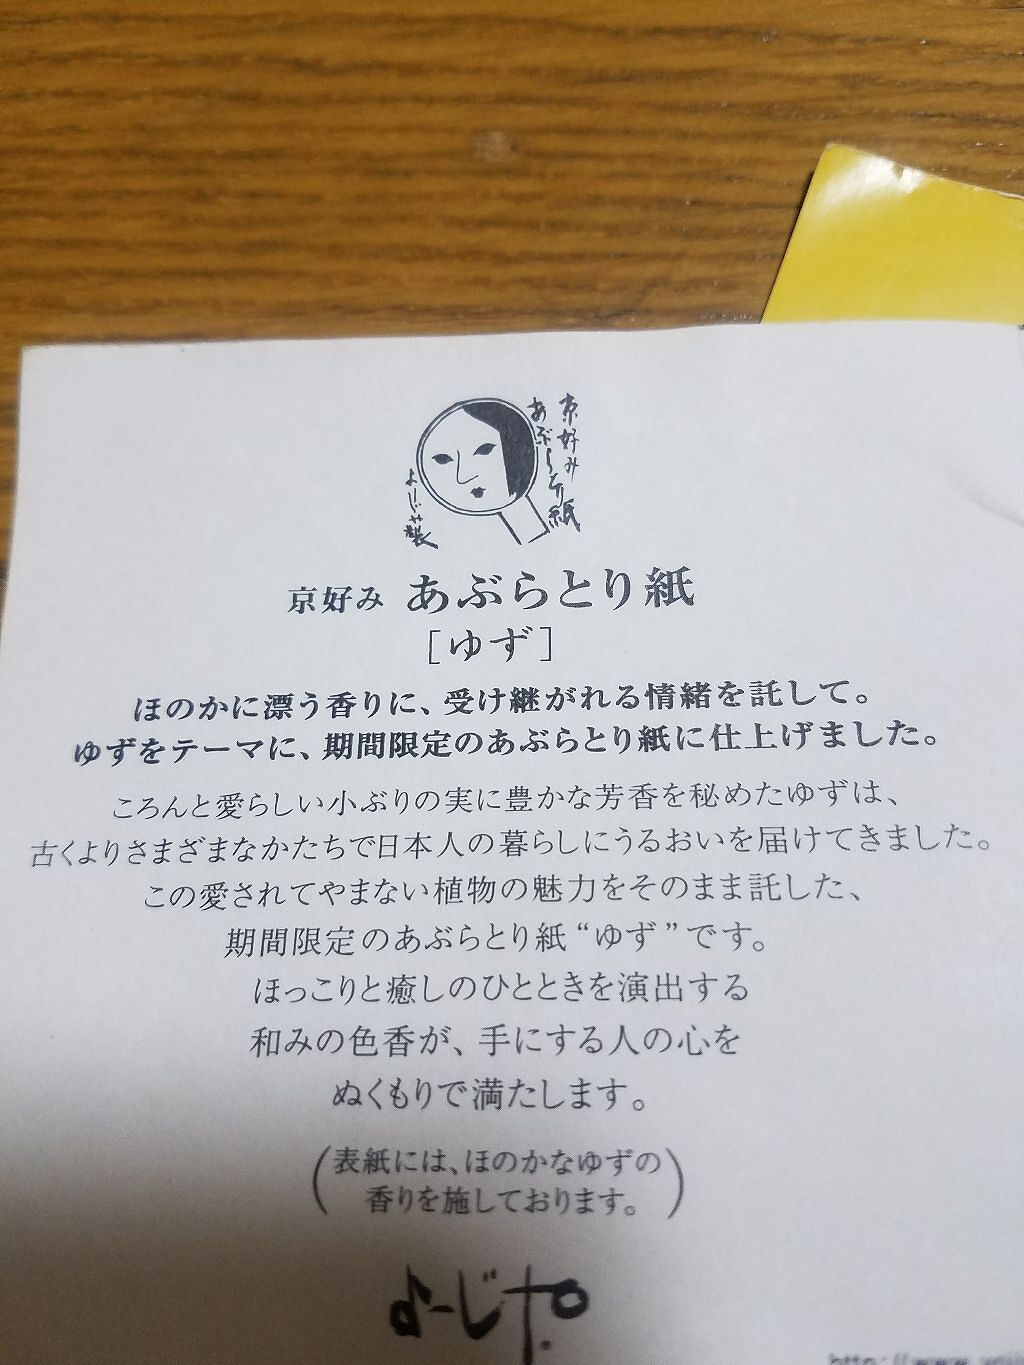 京好み
あぶらとり紙
よーじや製
京好み あぶらとり紙
［ゆず］
ほのかに漂う香りに、受け継がれる情緒を託して。
ゆずをテーマに、期間限定のあぶらとり紙に仕上げました。
ころんと愛らしい小ぶりの実に豊かな芳香を秘めたゆずは、
古くよりさまざまなかたちで日本人の暮らしにうるおいを届けてきました。
この愛されてやまない植物の魅力をそのまま託した、
期間限定のあぶらとり紙“ゆず”です。
ほっこりと癒しのひとときを演出する
和みの色香が、手にする人の心を
ぬくもりで満たします。
（表紙には、ほのかなゆずの
香りを施しております。）
よーじや